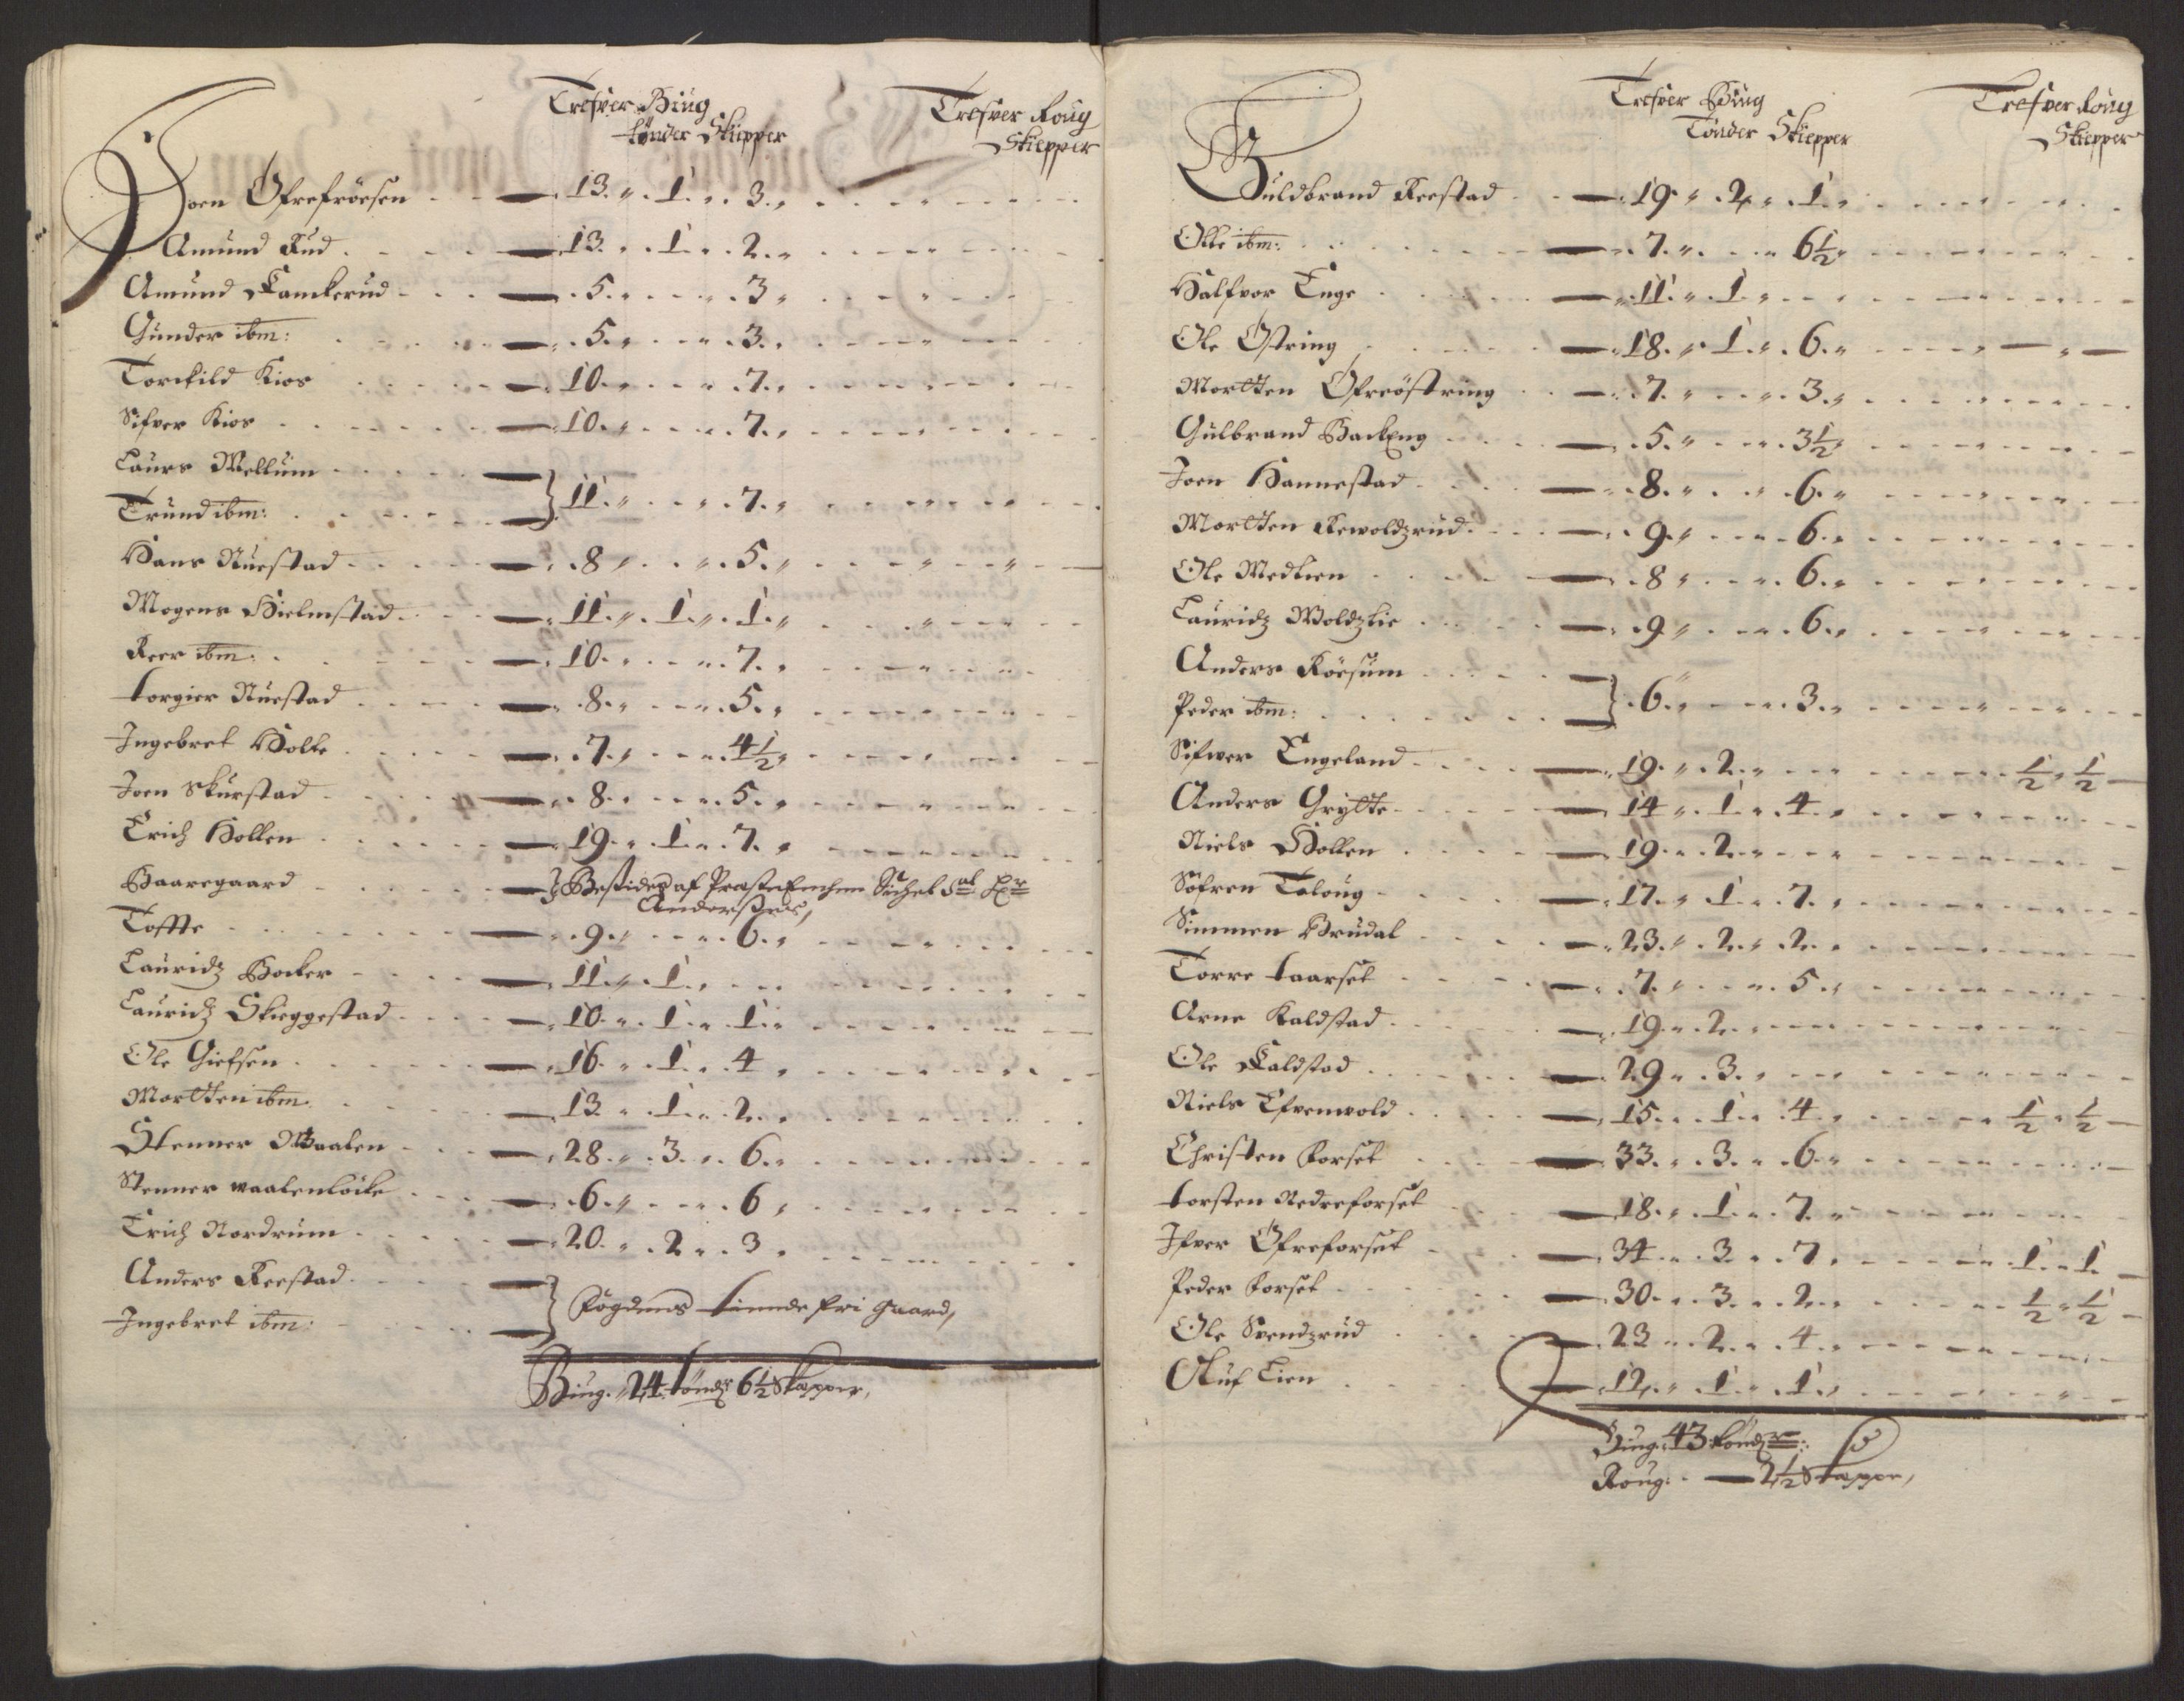 Trefver Biug
tønder Skiepper
Trefver Roug
Skiepper
Joen Øfrefrøesen 13 1 3
Amund Rud 13 1 2
Amund Fanckerud 5 3
Gunder ibm: 5 3
Torckild Kios 10 7
Sifver Kios 10 7
Laurs Mellum
Trund ibm: 11 7
Hans Nuestad 8 5
Mogens Hielmstad 11 1 1
Reer ibm: 10 7
torgier Nuestad 8 5
Ingebret Holte 7 4½
Joen Skurstad 8 5
Erich Hollen 19 1 7
Baaregaard Besides af Præste Enchen Sichel Sal Hr
Anderssens,
Toffte 9 6
Lauridz Hocker 11 1
Lauridz Skieggestad 10 1 1
Ole Giefsen 16 1 4
Mortten ibm. 13 1 2
Stenner Waalen 28 3 6
Stenner waalenløcke 6 6
Erich Nordrum 20 2 3
Anders Reestad
Ingebret ibm: Fogdens tiende fri Gaard,
Biug. 24 tøndr 6½ Skapper,
Trefver Biug
Tønder Skiepper
Trefver Roug
Skiepper
Guldbrand Reestad 19 2 1
Olle ibm: 7 6½
Halfvor Enge 11 1
Ole Østring 18 1 6
Mortten Øfreøstring 7 3
Gulbrand Backeng 5 3½
Joen Hannestad 8 6
Mortten Rewoldzrud 9 6
Ole Medlien 8 6
Lauridz Woldzlie 9 6
Anders Røesum
Peder ibm: 6 3
Sifwer Engeland 19 2 ½ ½
Anders Grytte 14 1 4
Niels Hollen 19 2
Søfren Taloug 17 1 7
Simmen Brudal 23 2 2
Torre taarset 7 5
Arne Kaldstad 19 2
Ole Kaldstad 29 3
Niels Efvenwold 15 1 4 ½ ½
Christen Forset 33 3 6
torsten Nedreforset 18 1 7
Ifver Øfreforset 34 3 7 1 1
Peder Forset 30 3 2 ½ ½
Ole Svendzrud 23 2 4
Oluf Lien 12 1 1
Biug. 43 tøndr:
Roug: 2½ Skapper,